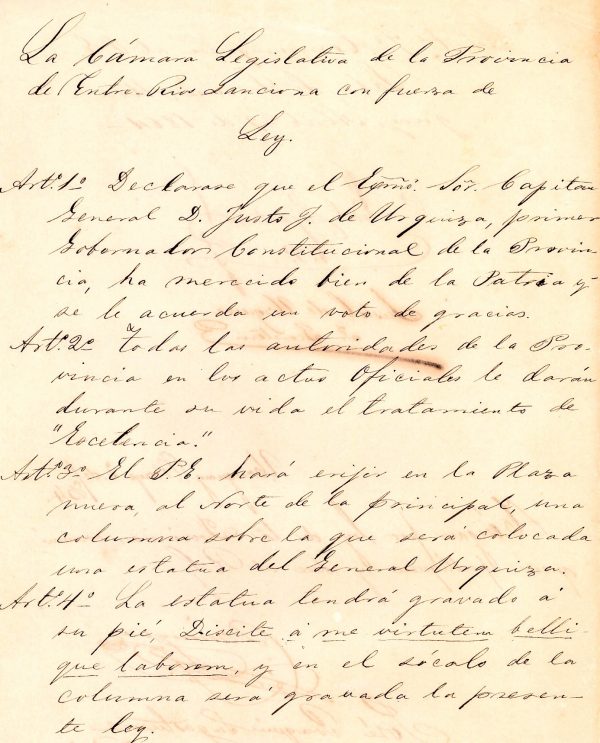 La Cámara Legislativa de la Provincia
de Entre-Rios Sanciona con fuerza de
Ley.
Artº. 1º Declarase que el Exmô. Sôr. Capitan
General D. Justo J. de Urquiza, primer
Gobernador Constitucional de la Provin-
cia, ha merecido bien de la Patria y
se le acuerda un voto de gracias.
Artº. 2º Todas las autoridades de la Pro-
vincia en los actos Oficiales le darán
durante su vida el tratamiento de
"Escelencia."
Artº. 3º El P.E. hará erijir en la Plaza
nueva, al Norte de la principal, una
columna sobre la que será colocada
una estatua del General Urquiza.
Artº. 4º La estatua tendrá gravado á
su pié Discite á me virtutem belli-
que laborem, y en el sócalo de la
columna será gravada la presen-
te ley.